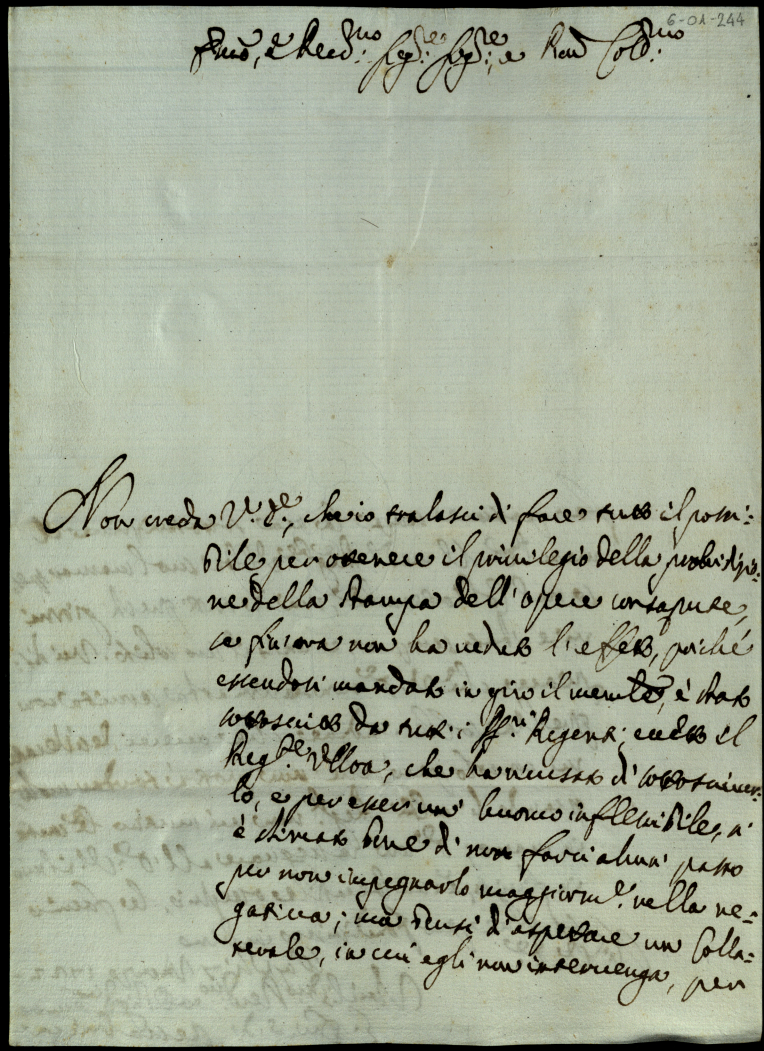 6-01-244
Emo, e Revd:mo Sigre: Sigre:, e Prñ Cold:mo
Non creda V.E., che io tralasci di fare tutto il possi=
bile per ottenere il privilegio della proibizio=
ne della stampa dell'opere consapute,
se fin'ora non ha veduto l'effetto, poiché
essendosi mandato in giro il memle, è stato
sottoscritto da tutti i SSri Regenti, eccetto il
Regte Ulloa, che ha ricusato di sottoscriver=
lo, e per esser un huomo inflessibile, si
è stimato bene di non farci altri passi
per non impegnarlo maggiorme. nella ne=
gativa; ma bensi d'aspettare un Colla=
terale, in cui egli non intervenga, per